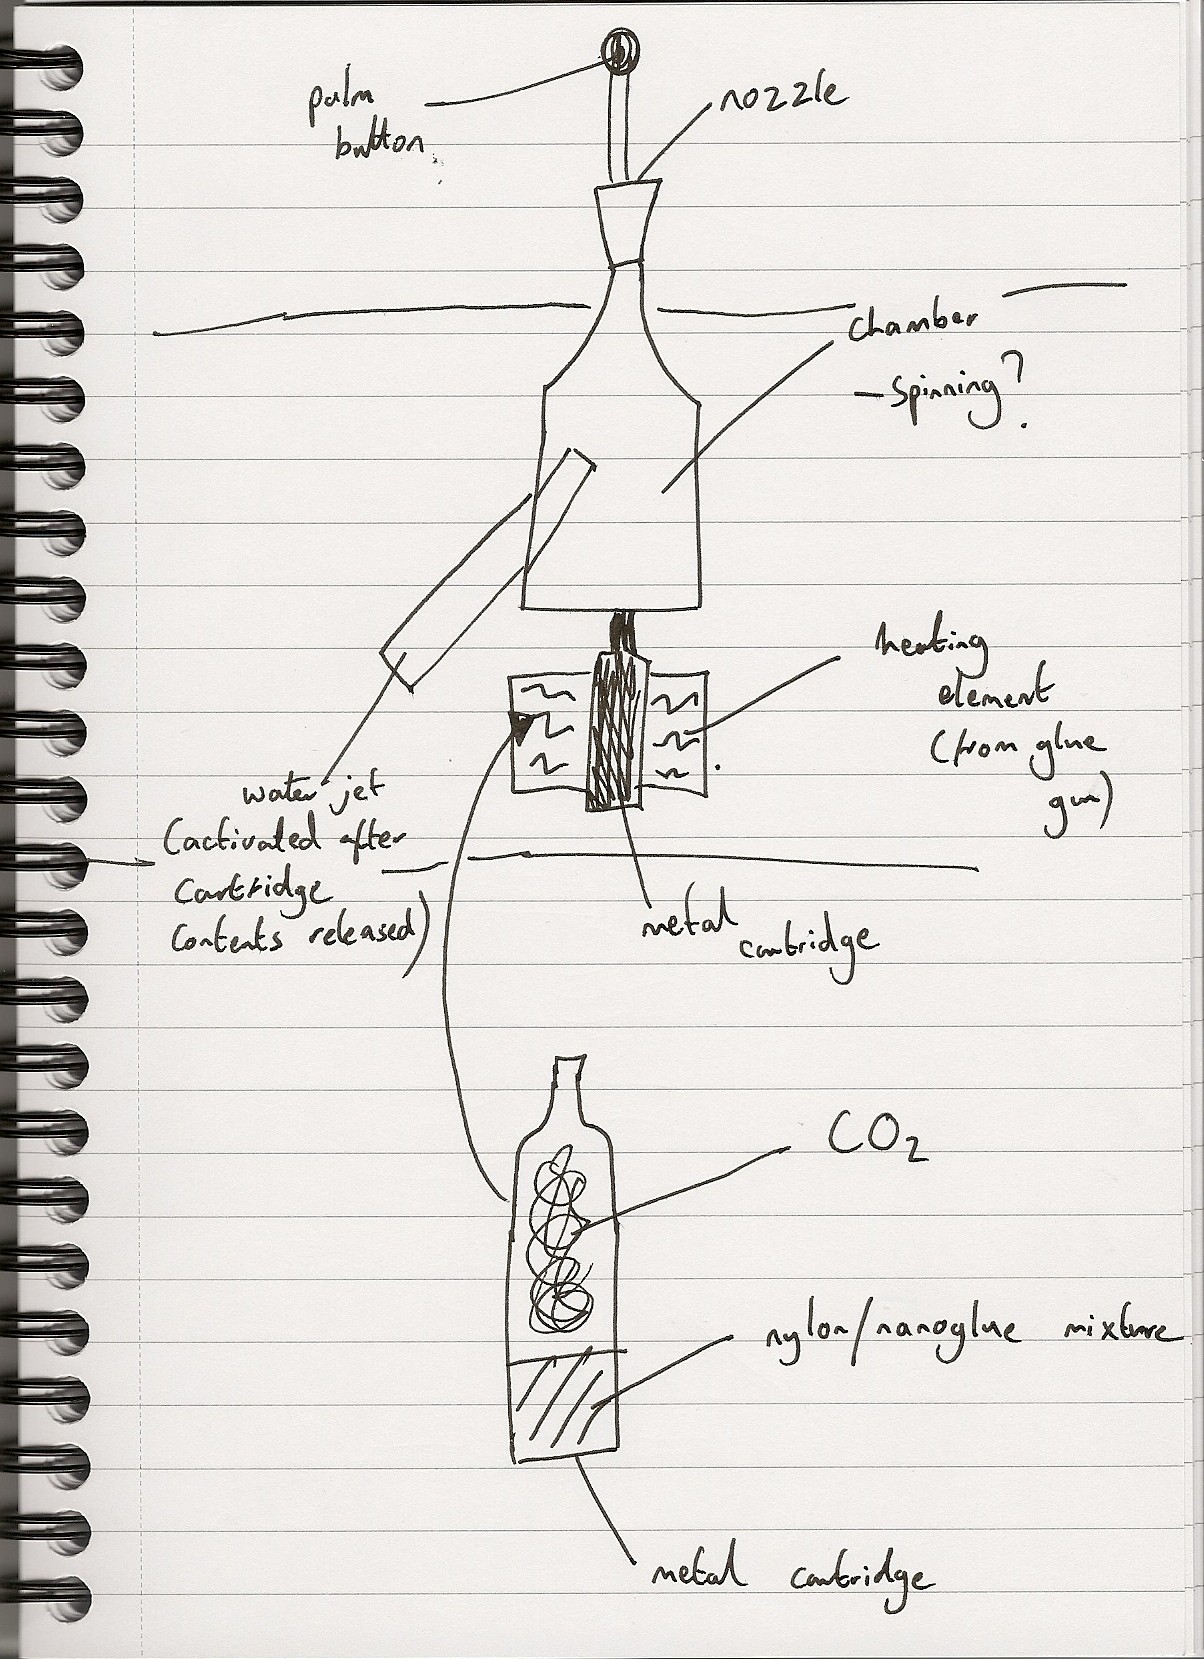 palm
button
nozzle
chamber
– Spinning?
heating
element
(from glue
gun)
water jet
(activated after
cartridge
contents released)
metal
cartridge
CO₂
nylon/nanoglue mixture
metal cartridge